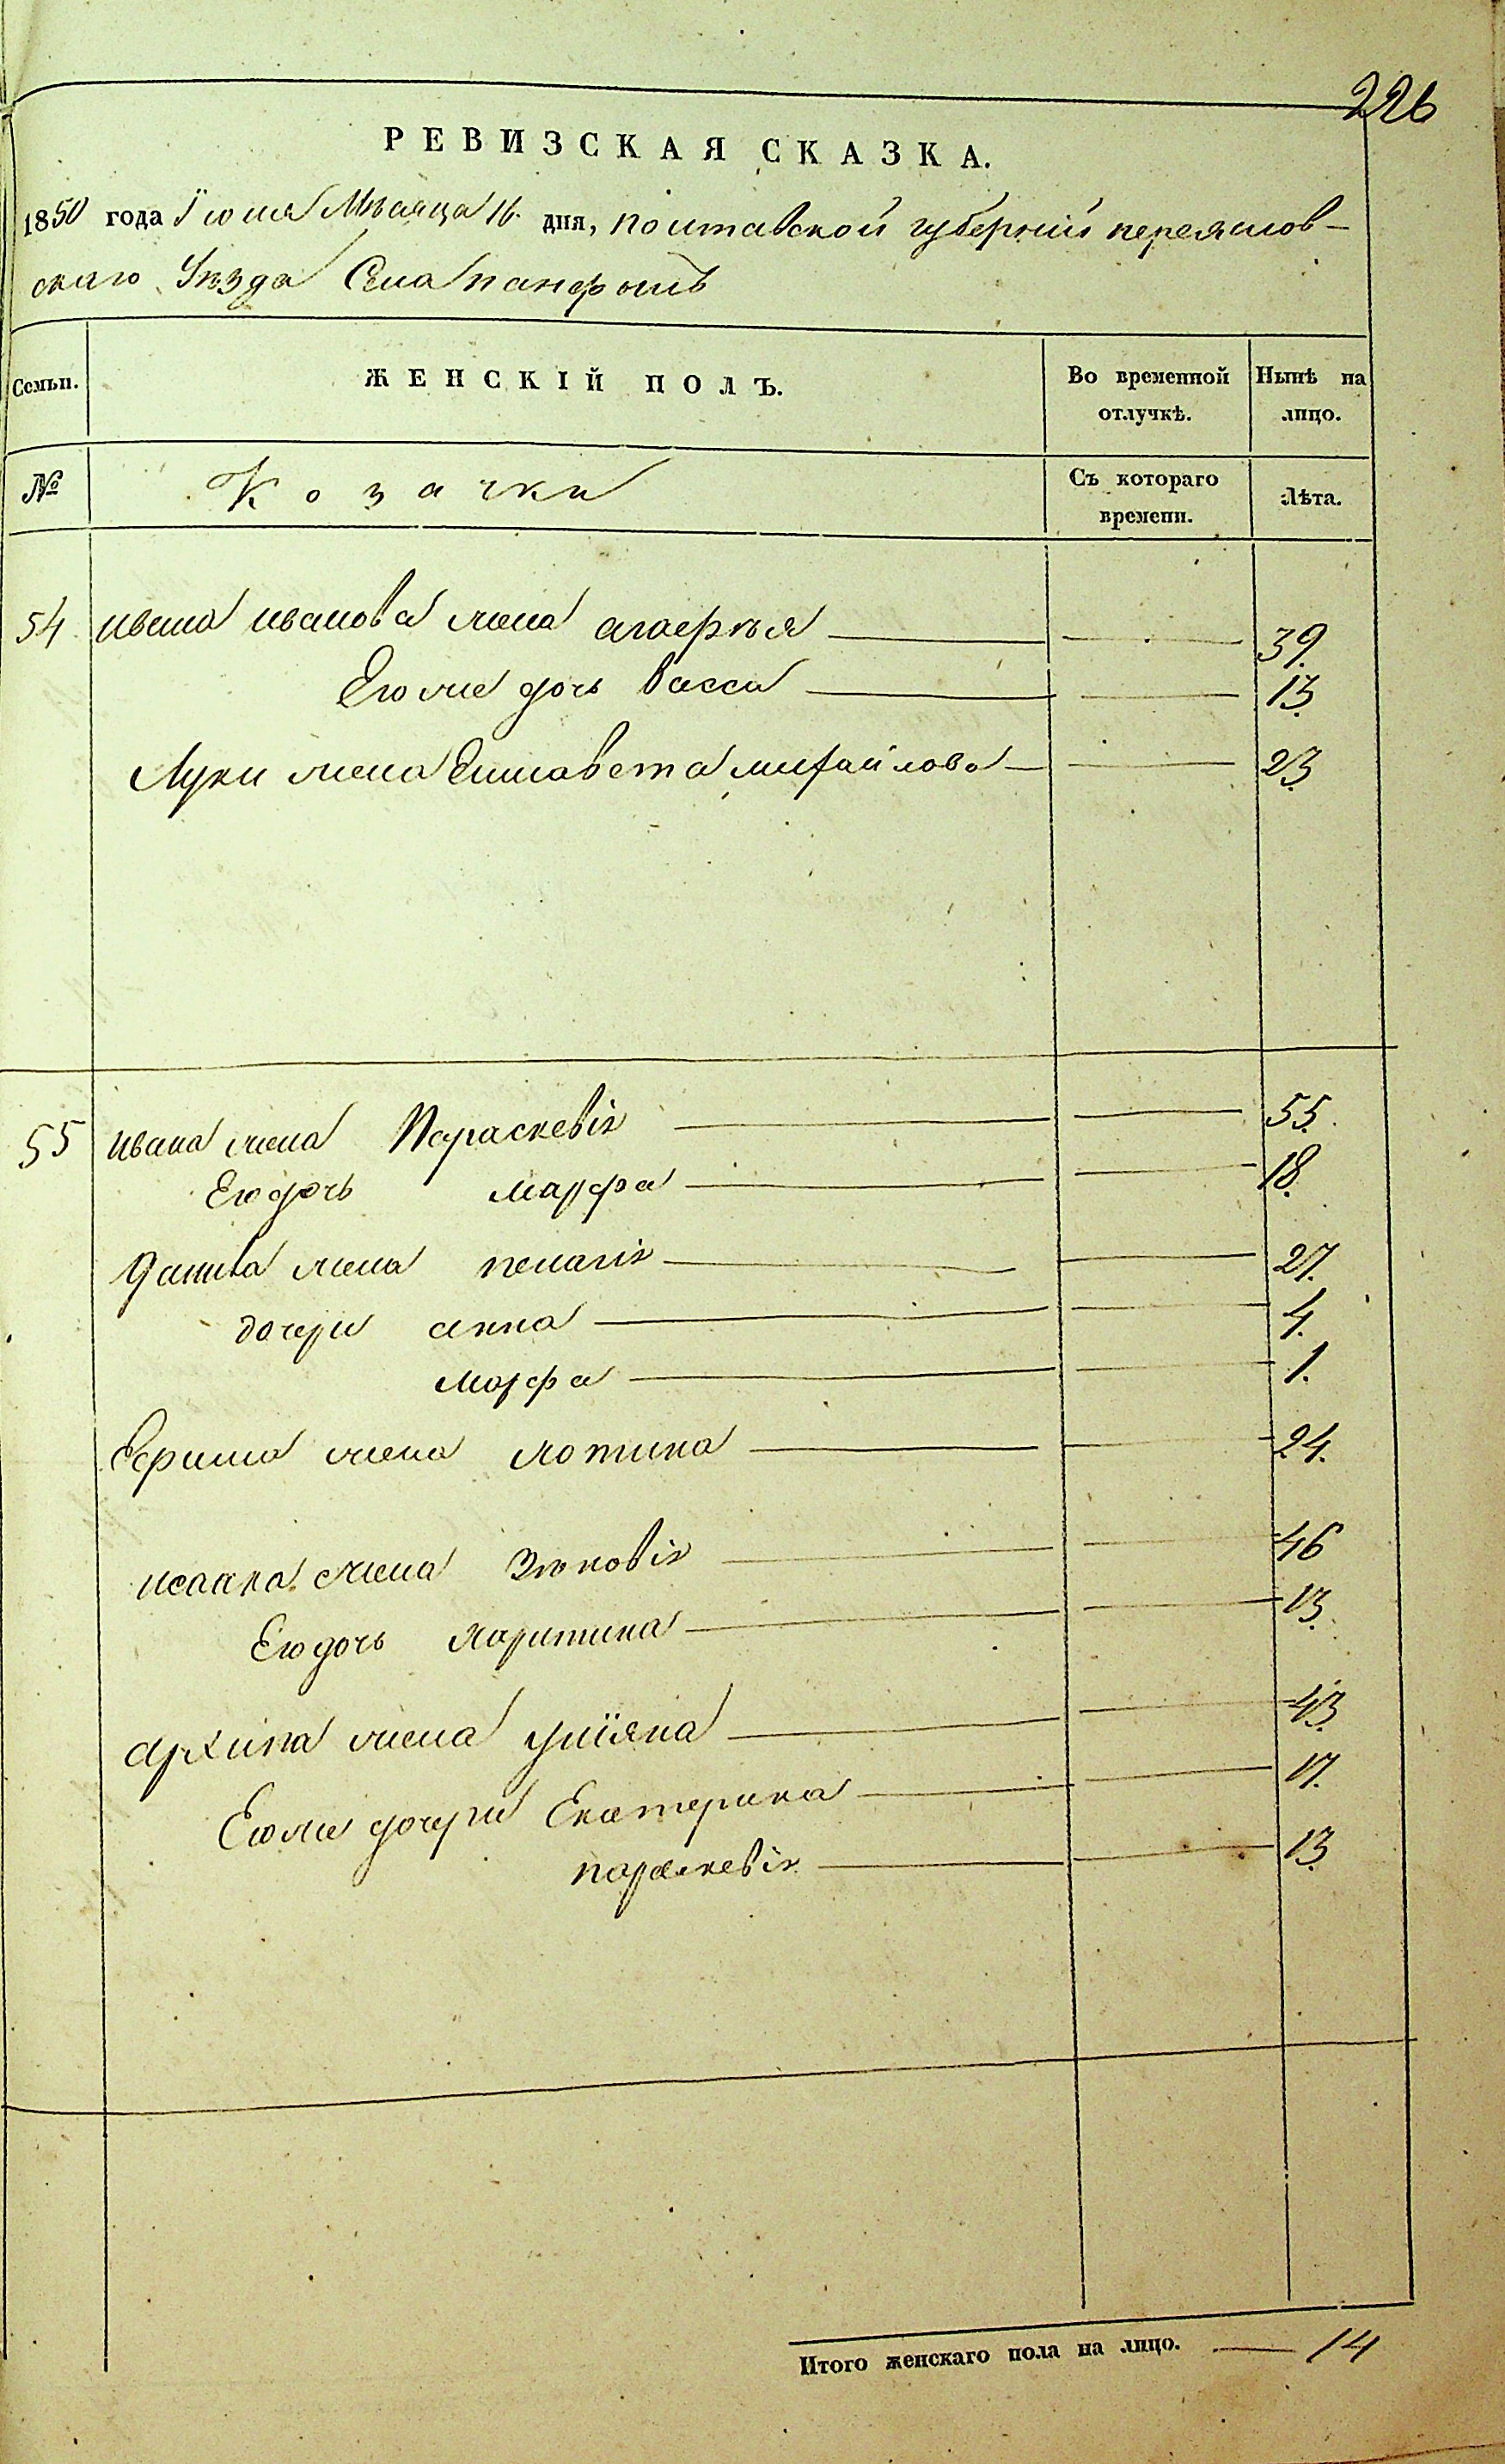 226
РЕВИЗСКАЯ СКАЗКА.
1850 года Іюня Мѣсяца 16 дня, полтавской губерніи переяслов-
скаго Уѣзда Села панфилъ
Семьи.
ЖЕНСКІЙ ПОЛЪ.
Во временной отлучкѣ.
Нынѣ на лицо.
№
Козачки
Съ котораго времени.
Лѣта.
54 ивана иванова жена агафья 39.
Его же дочь Васса 13.
Луки жена Елисавета михайлова 23.
55 ивана жена Параскевія 55.
Его дочь марфа 18.
Данила жена пелагія 27.
дочери анна 4.
марфа 1.
Ефима жена 24.
исаака жена Зѣновія 46
Его дочь харитина 13.
архипа жена уліяна 43.
Его же дочери Екатерина 17.
параскевія 13.
Итого женскаго пола на лицо. 14